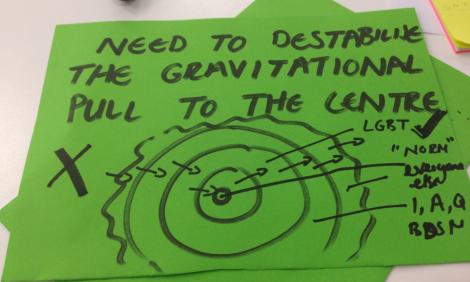 NEED TO DESTABILISE
THE GRAVITATIONAL
PULL TO THE CENTRE
X
LGBT ✓
"NORM"
everyone
else
I, A, Q
BDSM